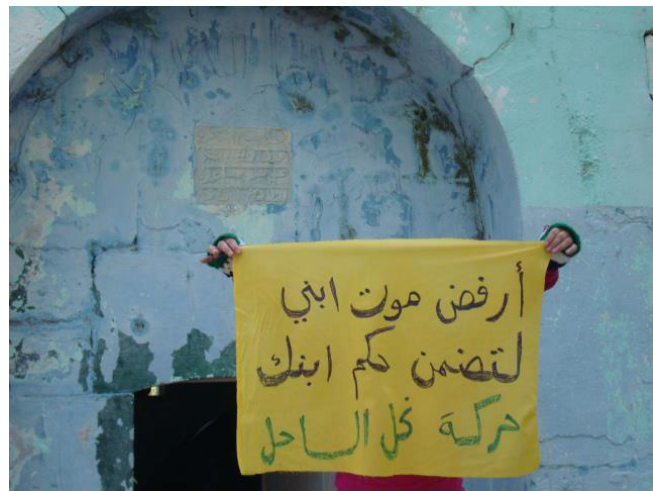 أرفض موت ابني
لتضمن حكم ابنك
حركة نحل الساحل